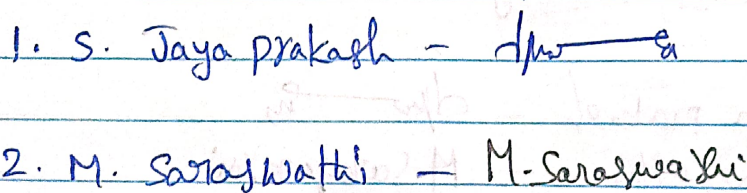 1. S. Jaya prakash -
2. M. Saraswathi - M. Saraswathi